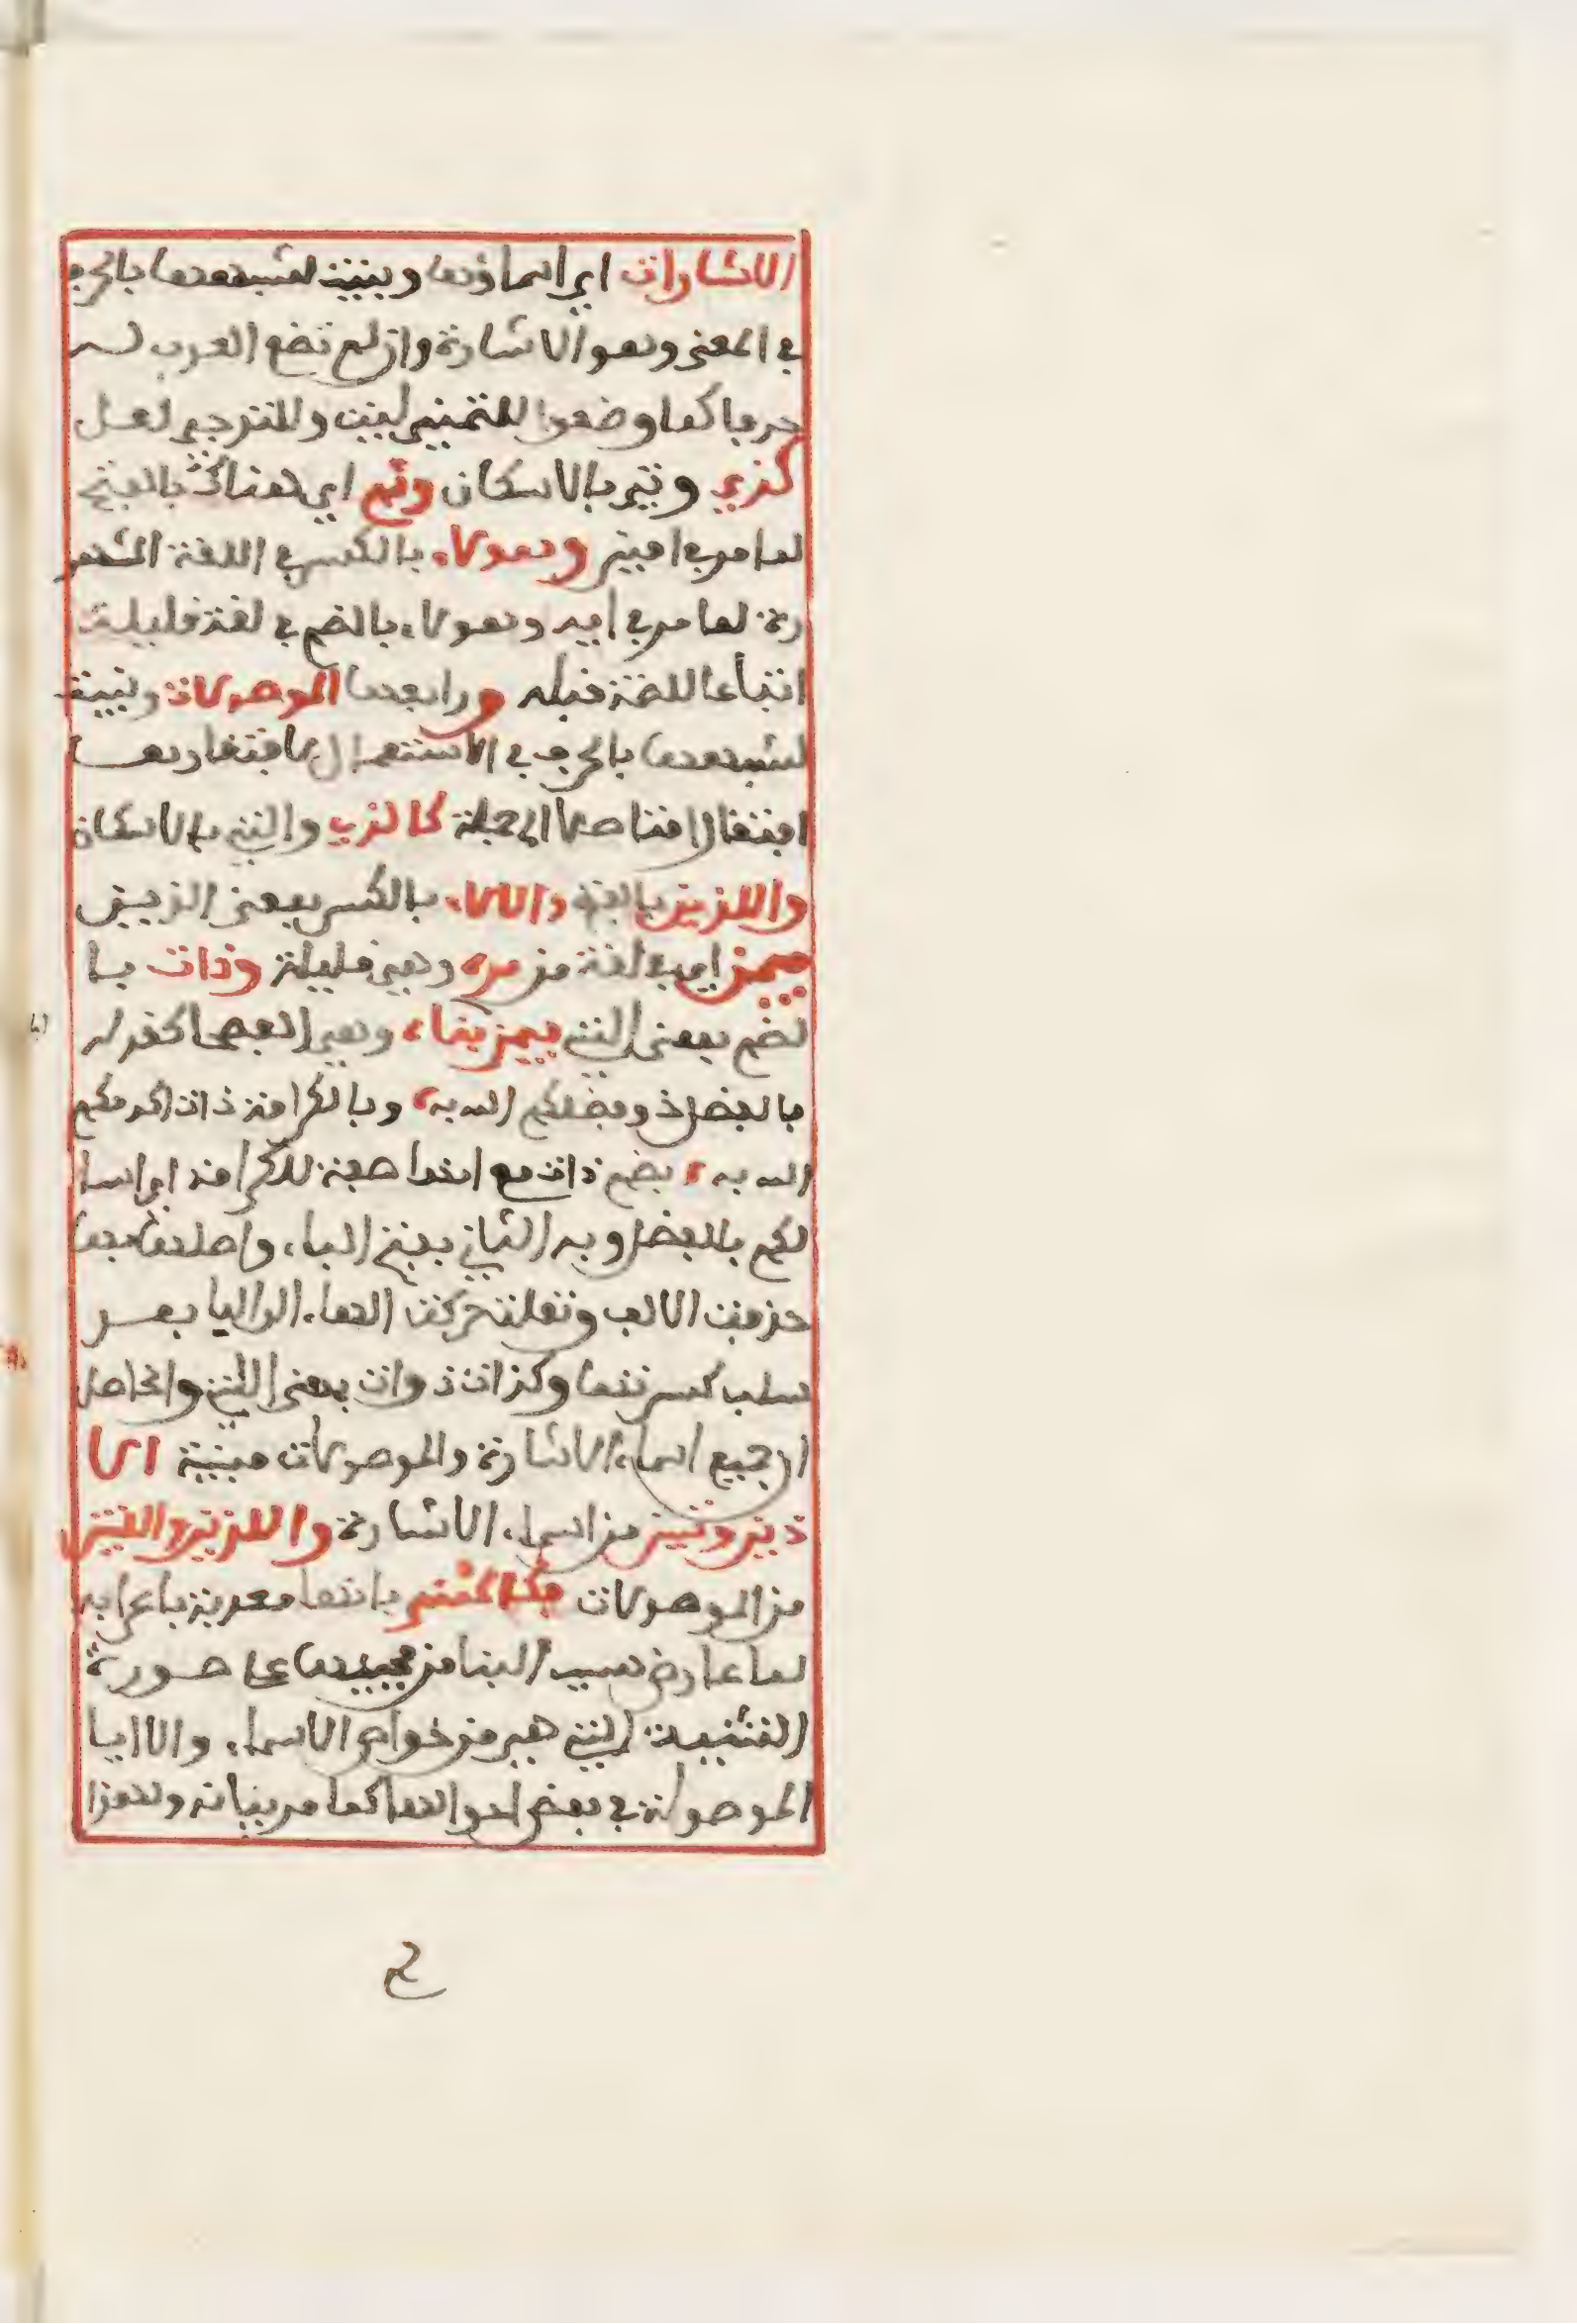 الاشارات اي اسماؤها وبنيت لشبهها بالحرف
في المعنى وهو الاشارة وان لم تضع العرب له
حرفا كما وضعوا للتمني ليت وللترجي لعل
كذي وتي بالاسكان وثم اي هناك بالفتح
لما مر في اين وهولاء بالكسر في اللغة المشهو
رة لما مر في امس وهولاء بالضم في لغة قليلة
اتباعا للضمة قبله ورابعها الموصولات وبنيت
لشبهها بالحرف في الاستعمال لافتقارها
افتقارا متاصلا الى جملة كالذي والتي بالاسكان
والذين بالفتح والالاء بالكسر بمعنى الذين
فيمن اي في لغة من مده وهي قليلة وذات با
لضم بمعنى التي فيمن بناه وهي الفصحا كقوله
بالفضل ذو فضلكم الله به وبالكرامة ذات اكرمكم
الله به بضم ذات مع انها صفة للكرامة اي اسا
لكم بالفضل وبه الثاني بفتح الباء واصلها بها
حذفت الالف ونقلت حركت الهاء الى اليا بعد
سلب كسرتها وكذات ذوات بمعنى التي والحاصل
ان جميع اسماء الاشارة والموصولات مبنية الا
ذين وتين من اسماء الاشارة واللذين واللتين
من الموصولات فكالمثنى فانها معربة باعرابه
لما عارض سبب البنا من مجيئها على صورة
التثنية التي هي من خواص الاسماء والا ايا
الموصولة في بعض احوالها كما مر بيانه ولهذا